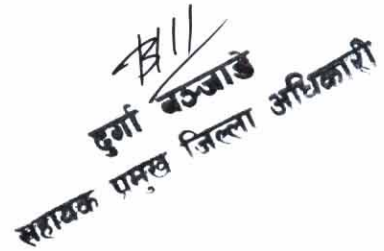 दुर्गा बञ्जाडे
सहायक प्रमुख जिल्ला अधिकारी